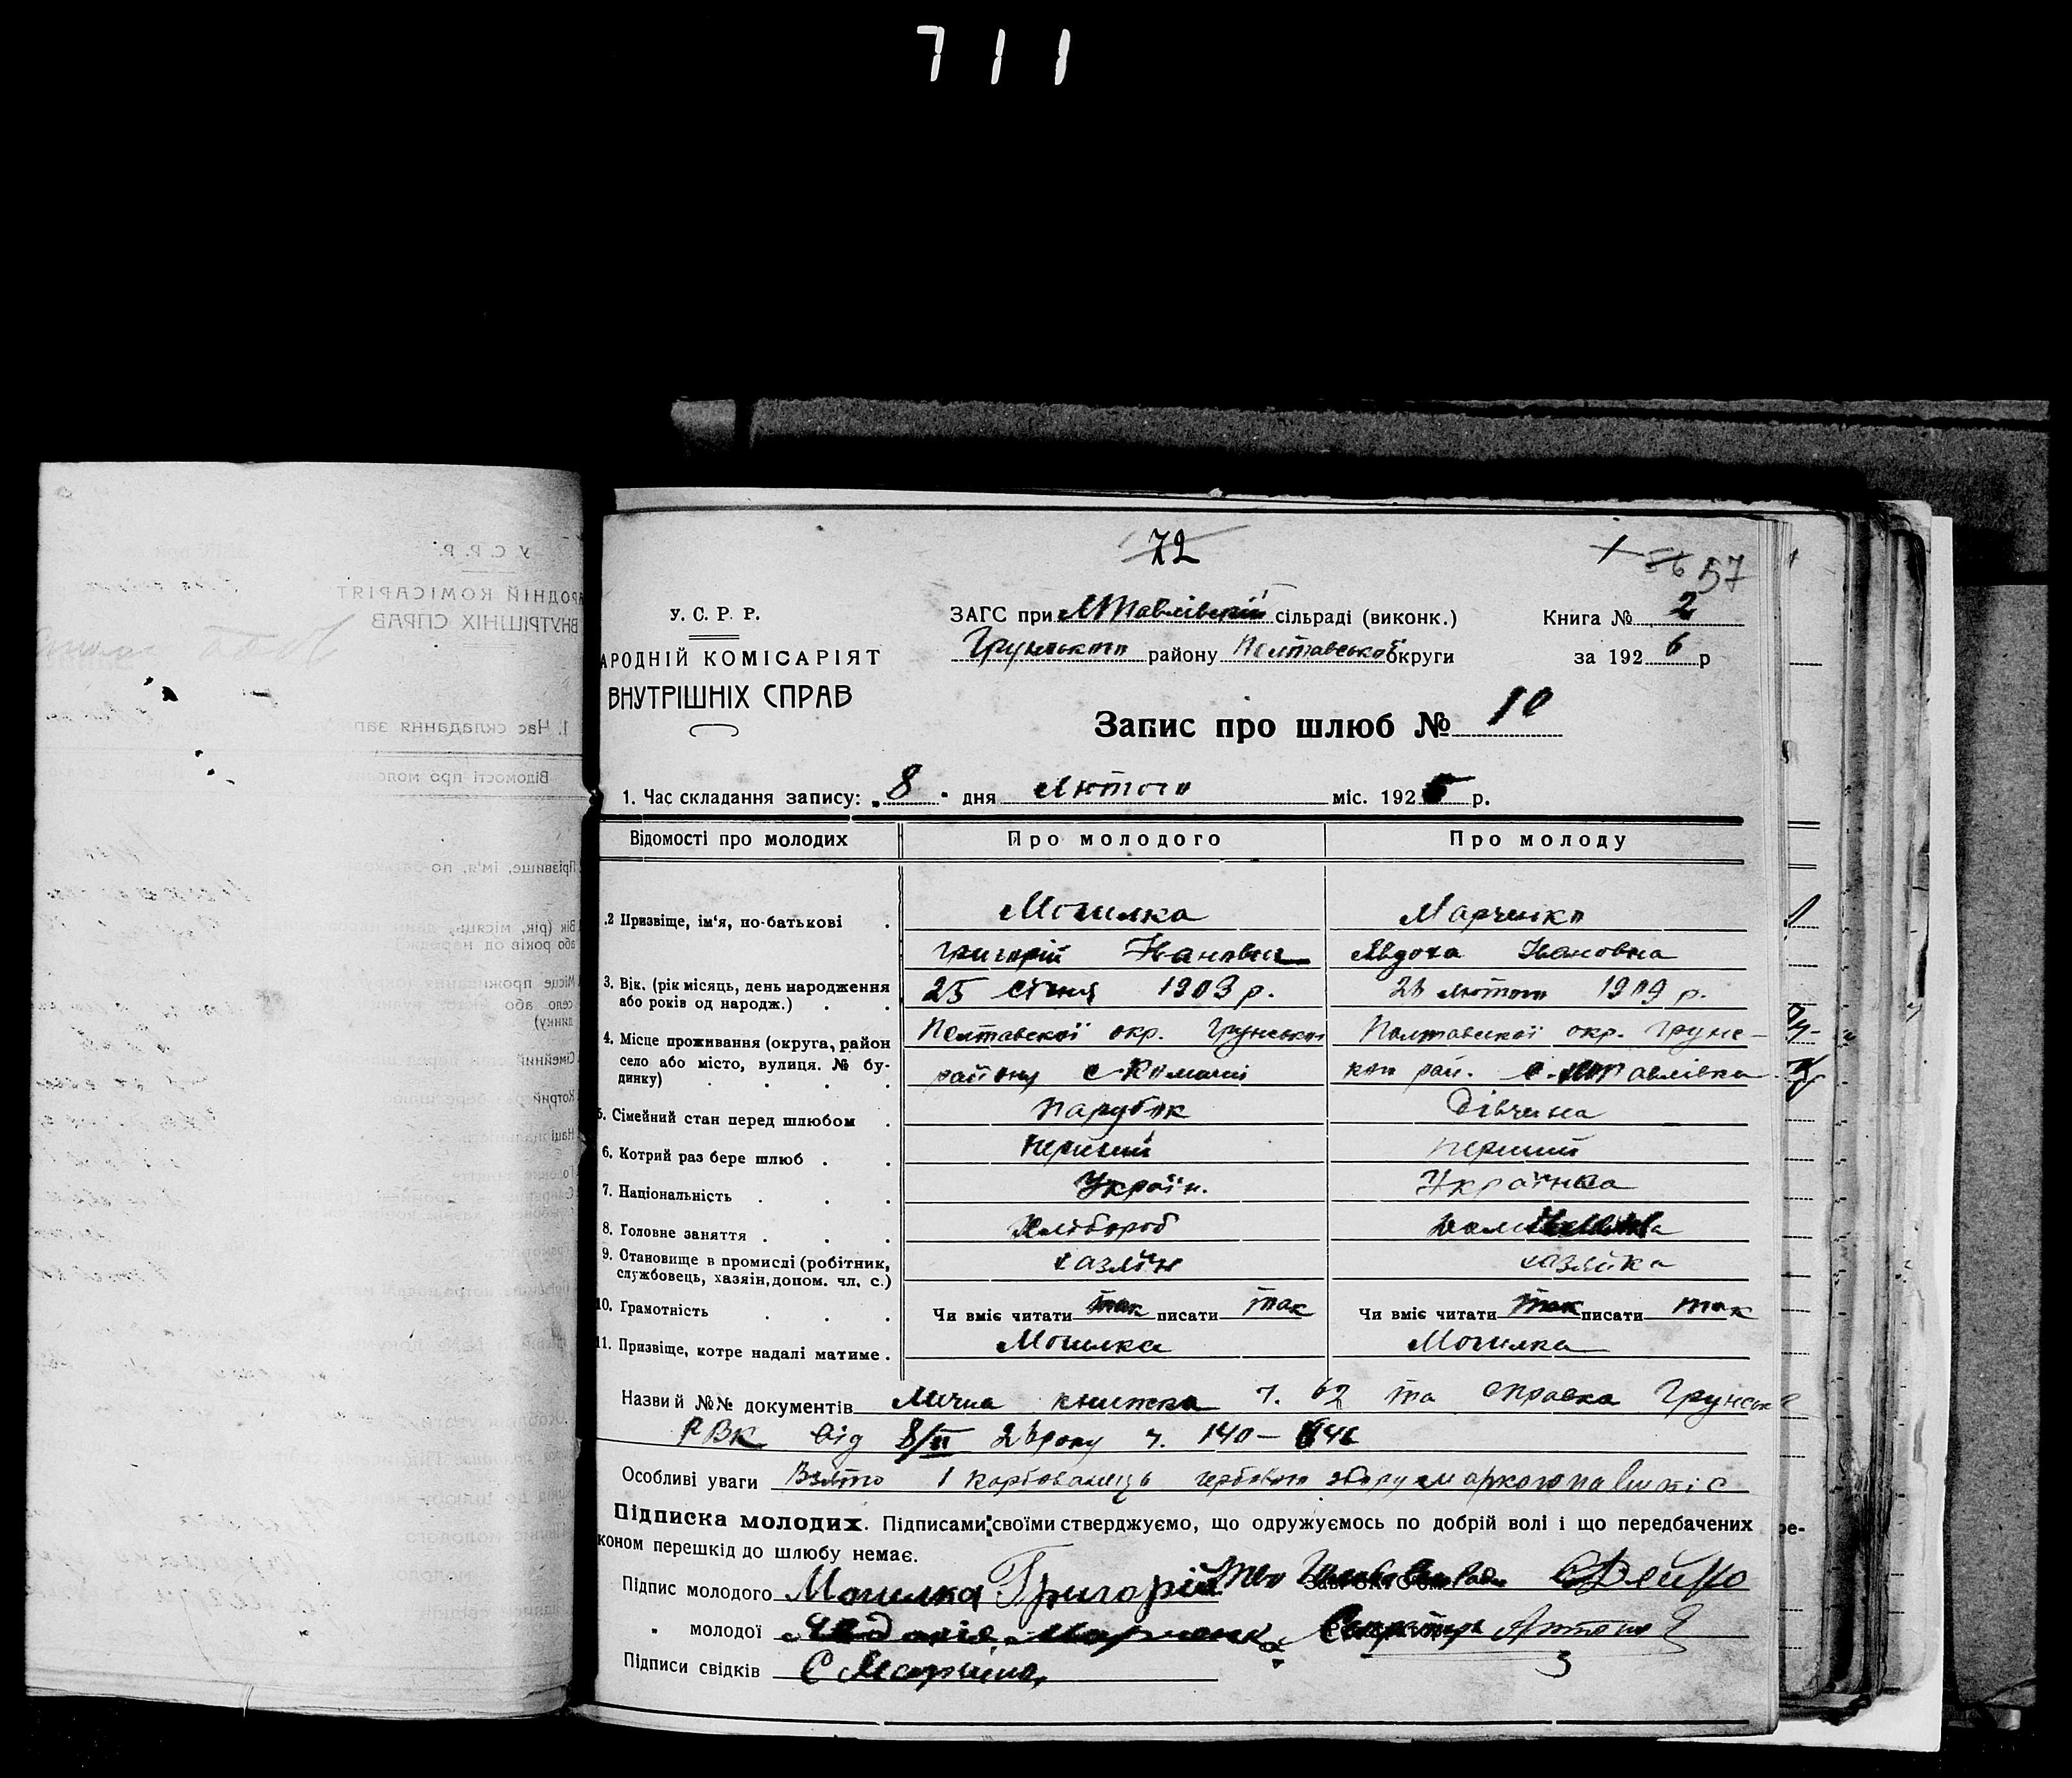 711
72
1 56 57
У. С. Р. Р.
АРОДНІЙ КОМІСАРІЯТ
ВНУТРІШНІХ СПРАВ
ЗАГС при МПавлівській сільраді (виконк.)
Грунського району Полтавської округи
Книга № 2
за 1926 р
Запис про шлюб № 10
1. Час складання запису: „8" дня Лютого міс. 1926 р.
Відомості про молодих Про молодого Про молоду
.2 Призвіще, ім'я, по-батькові . Могилка Марченко
Григорій Іванович Явдоха Івановна
3. Вік. (рік місяць, день народження 25 січня 1903 р. лютого 1909 р.
або років од народж.) . .
4. Місце проживання (округа, район Полтавської окр. Грунського Полтавської окр. Грунс-
село або місто, вулиця. № бу- району с Комиші кого рай. с. МПавлівка
динку) . . . .
5. Сімейний стан перед шлюбом . Парубок Дівчина
6. Котрий раз бере шлюб . . перший перший
7. Національність . . . Україн. Українка
8. Головне заняття . . . Хлібороб
9. Становище в промислі (робітник, хазяїн хазяйка
службовець, хазяін, допом. чл. с.)
10. Грамотність . . . Чи вміє читати так писати так Чи вміє читати так писати так
11. Призвіще, котре надалі матиме . Могилка Могилка
Назви й №№ документів Лична книжка ч. 62 та справка Грунськ
РВК від 8/II 26 року ч. 140 —
Особливі уваги Взято 1 карбованець гербового збору маркою на
Підписка молодих. Підписами своїми стверджуємо, що одружуємось по добрій волі і що передбачених
коном перешкід до шлюбу немає.
Підпис молодого Могилка Григорій
" молодої Явдокія Марченко Секретарь
Підписи свідків С
3